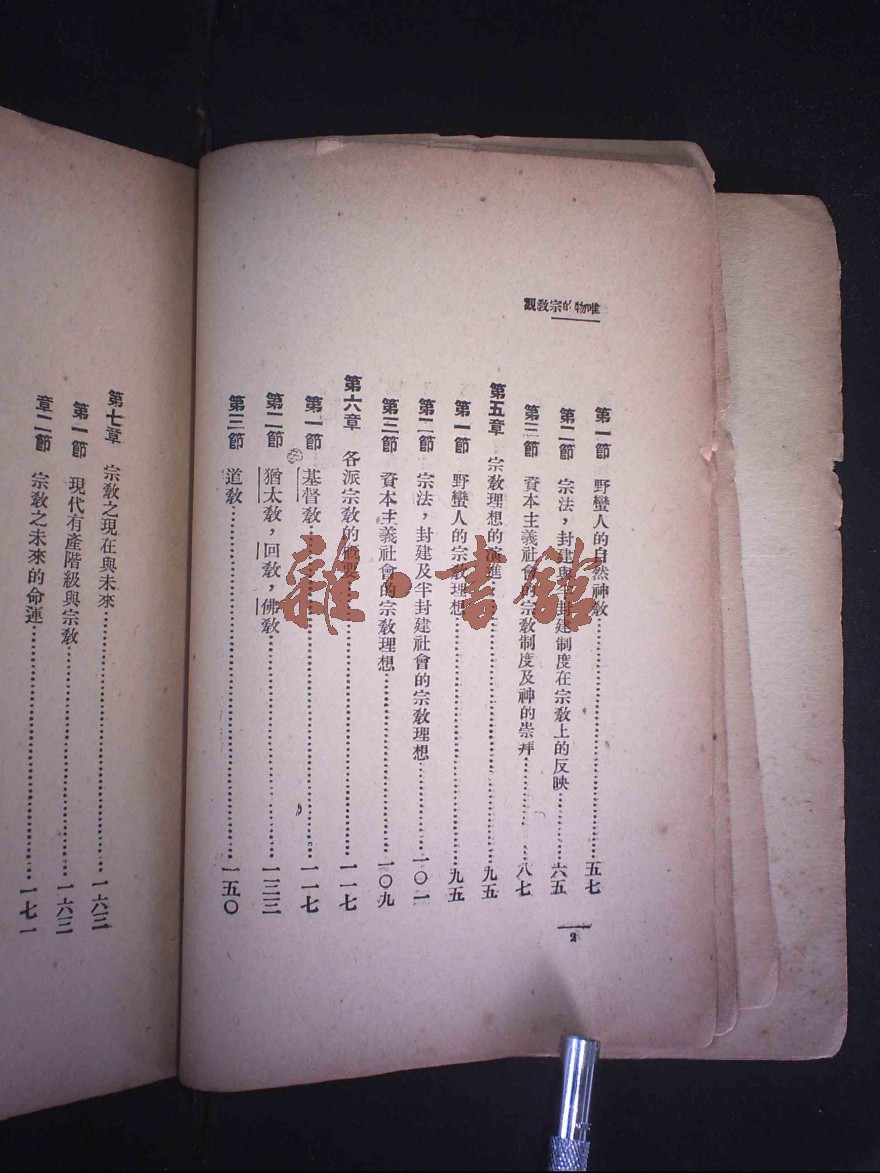 唯物的宗教觀
第一節 野蠻人的自然神教……五七
第二節 宗法，封建與半封建制度在宗教上的反映……六五
第三節 資本主義社會的宗教制度及神的崇拜……八七
第五章 宗教理想的演進……九五
第一節 野蠻人的宗教理想……九五
第二節 宗法，封建及半封建社會的宗教理想……一〇一
第三節 資本主義社會的宗教理想……一〇九
第六章 各派宗教的概要……一一七
第一節 基督教……一一七
第二節 猶太教，回教，佛教……一三三
第三節 道教……一五〇
2
第七章 宗教之現在與未來……一六三
第一節 現代有產階級與宗教……一六三
章二節 宗教之未來的命運……一七一
雜·書館